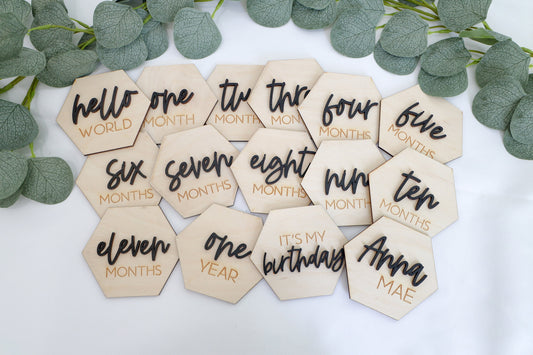 hello
WORLD
one
MONTH
two
MONTHS
three
MONTHS
four
MONTHS
five
MONTHS
six
MONTHS
seven
MONTHS
eight
MONTHS
nine
MONTHS
ten
MONTHS
eleven
MONTHS
one
YEAR
IT'S MY
birthday
Anna
MAE